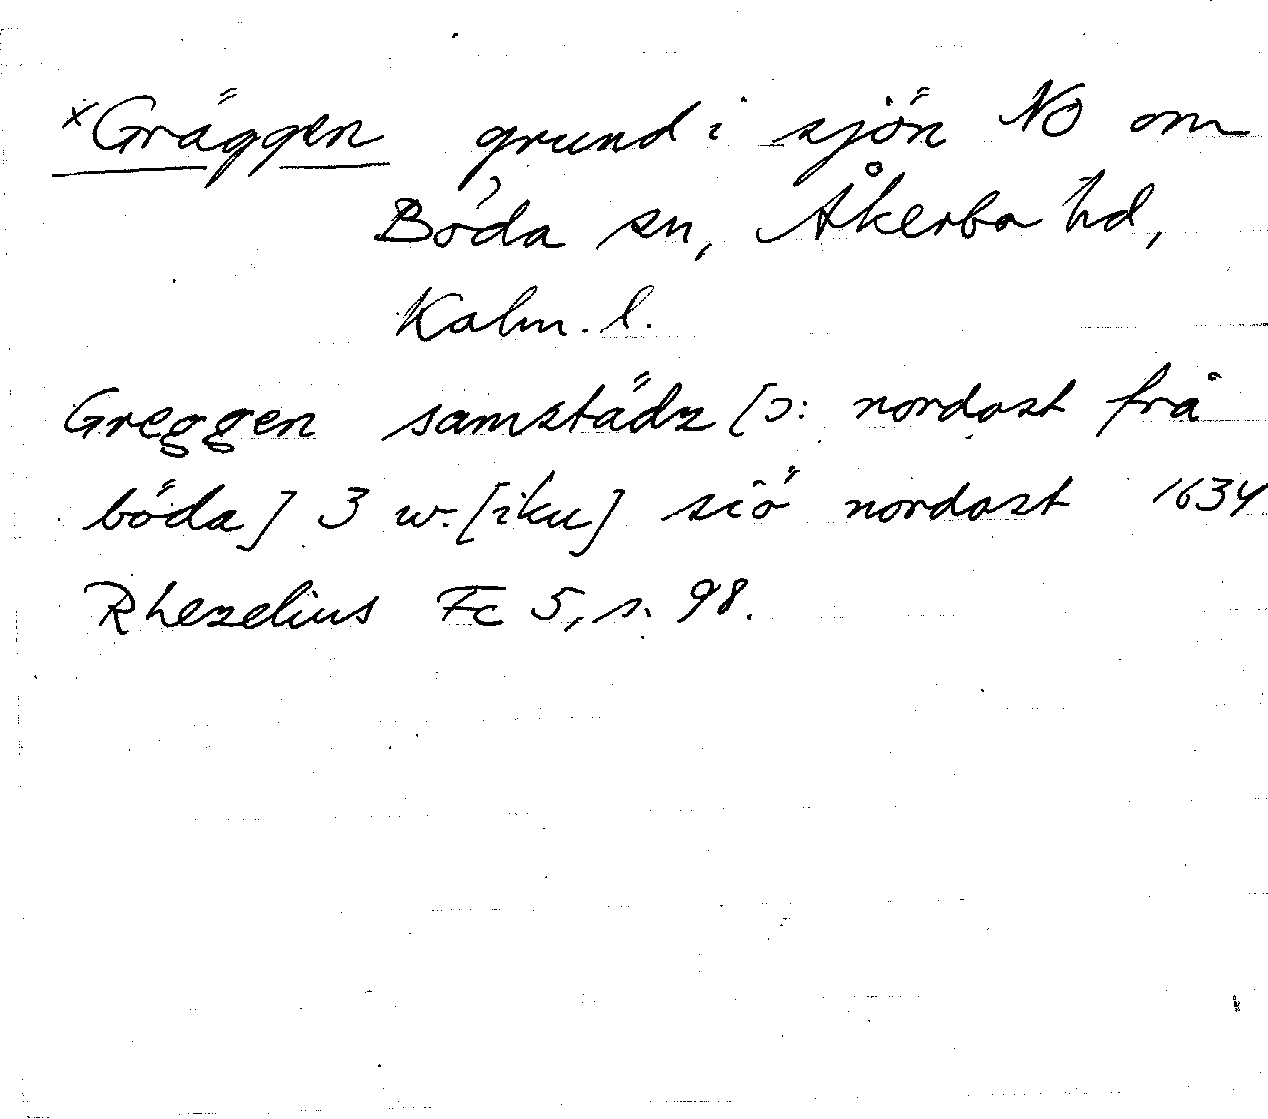 ×Gräggen grund i sjön NO om
Böda sn, Åkerbo hd,
Kalm. l.
Greggen samstädz [ɔ: nordost frå
böda] 3 w. [iku] siö nordost 1634
Rhezelius Fc 5, s. 98.